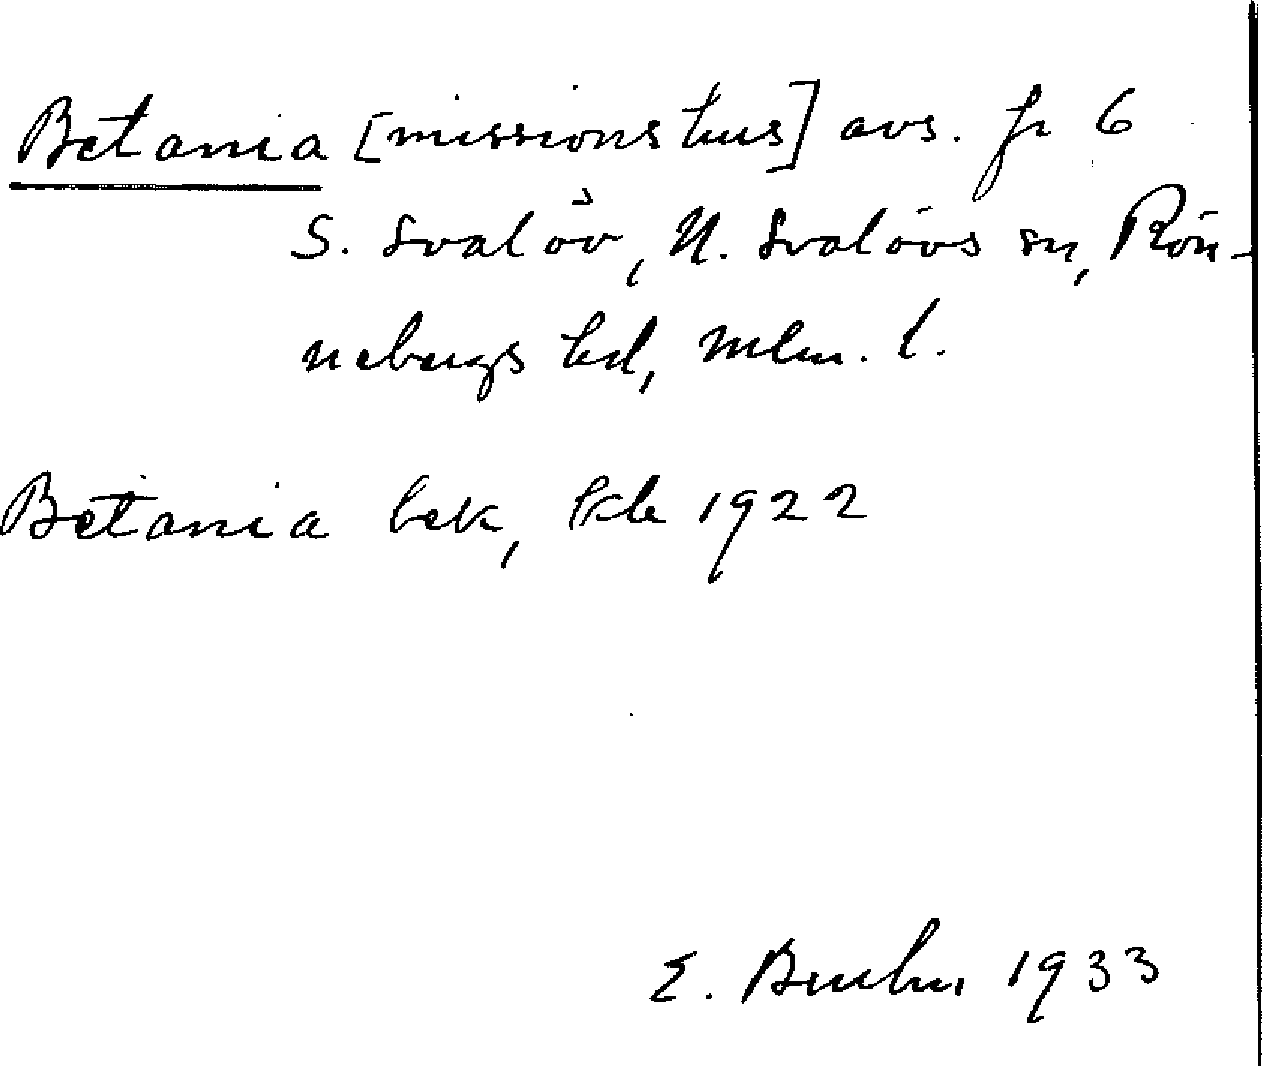 Betania [missionshus] avs. fr 6
S. Svalöv, N. Svalövs sn, Rön-
nebergs hd, Mlm. l.
Betania bek, Pkb 1922
E. 1933